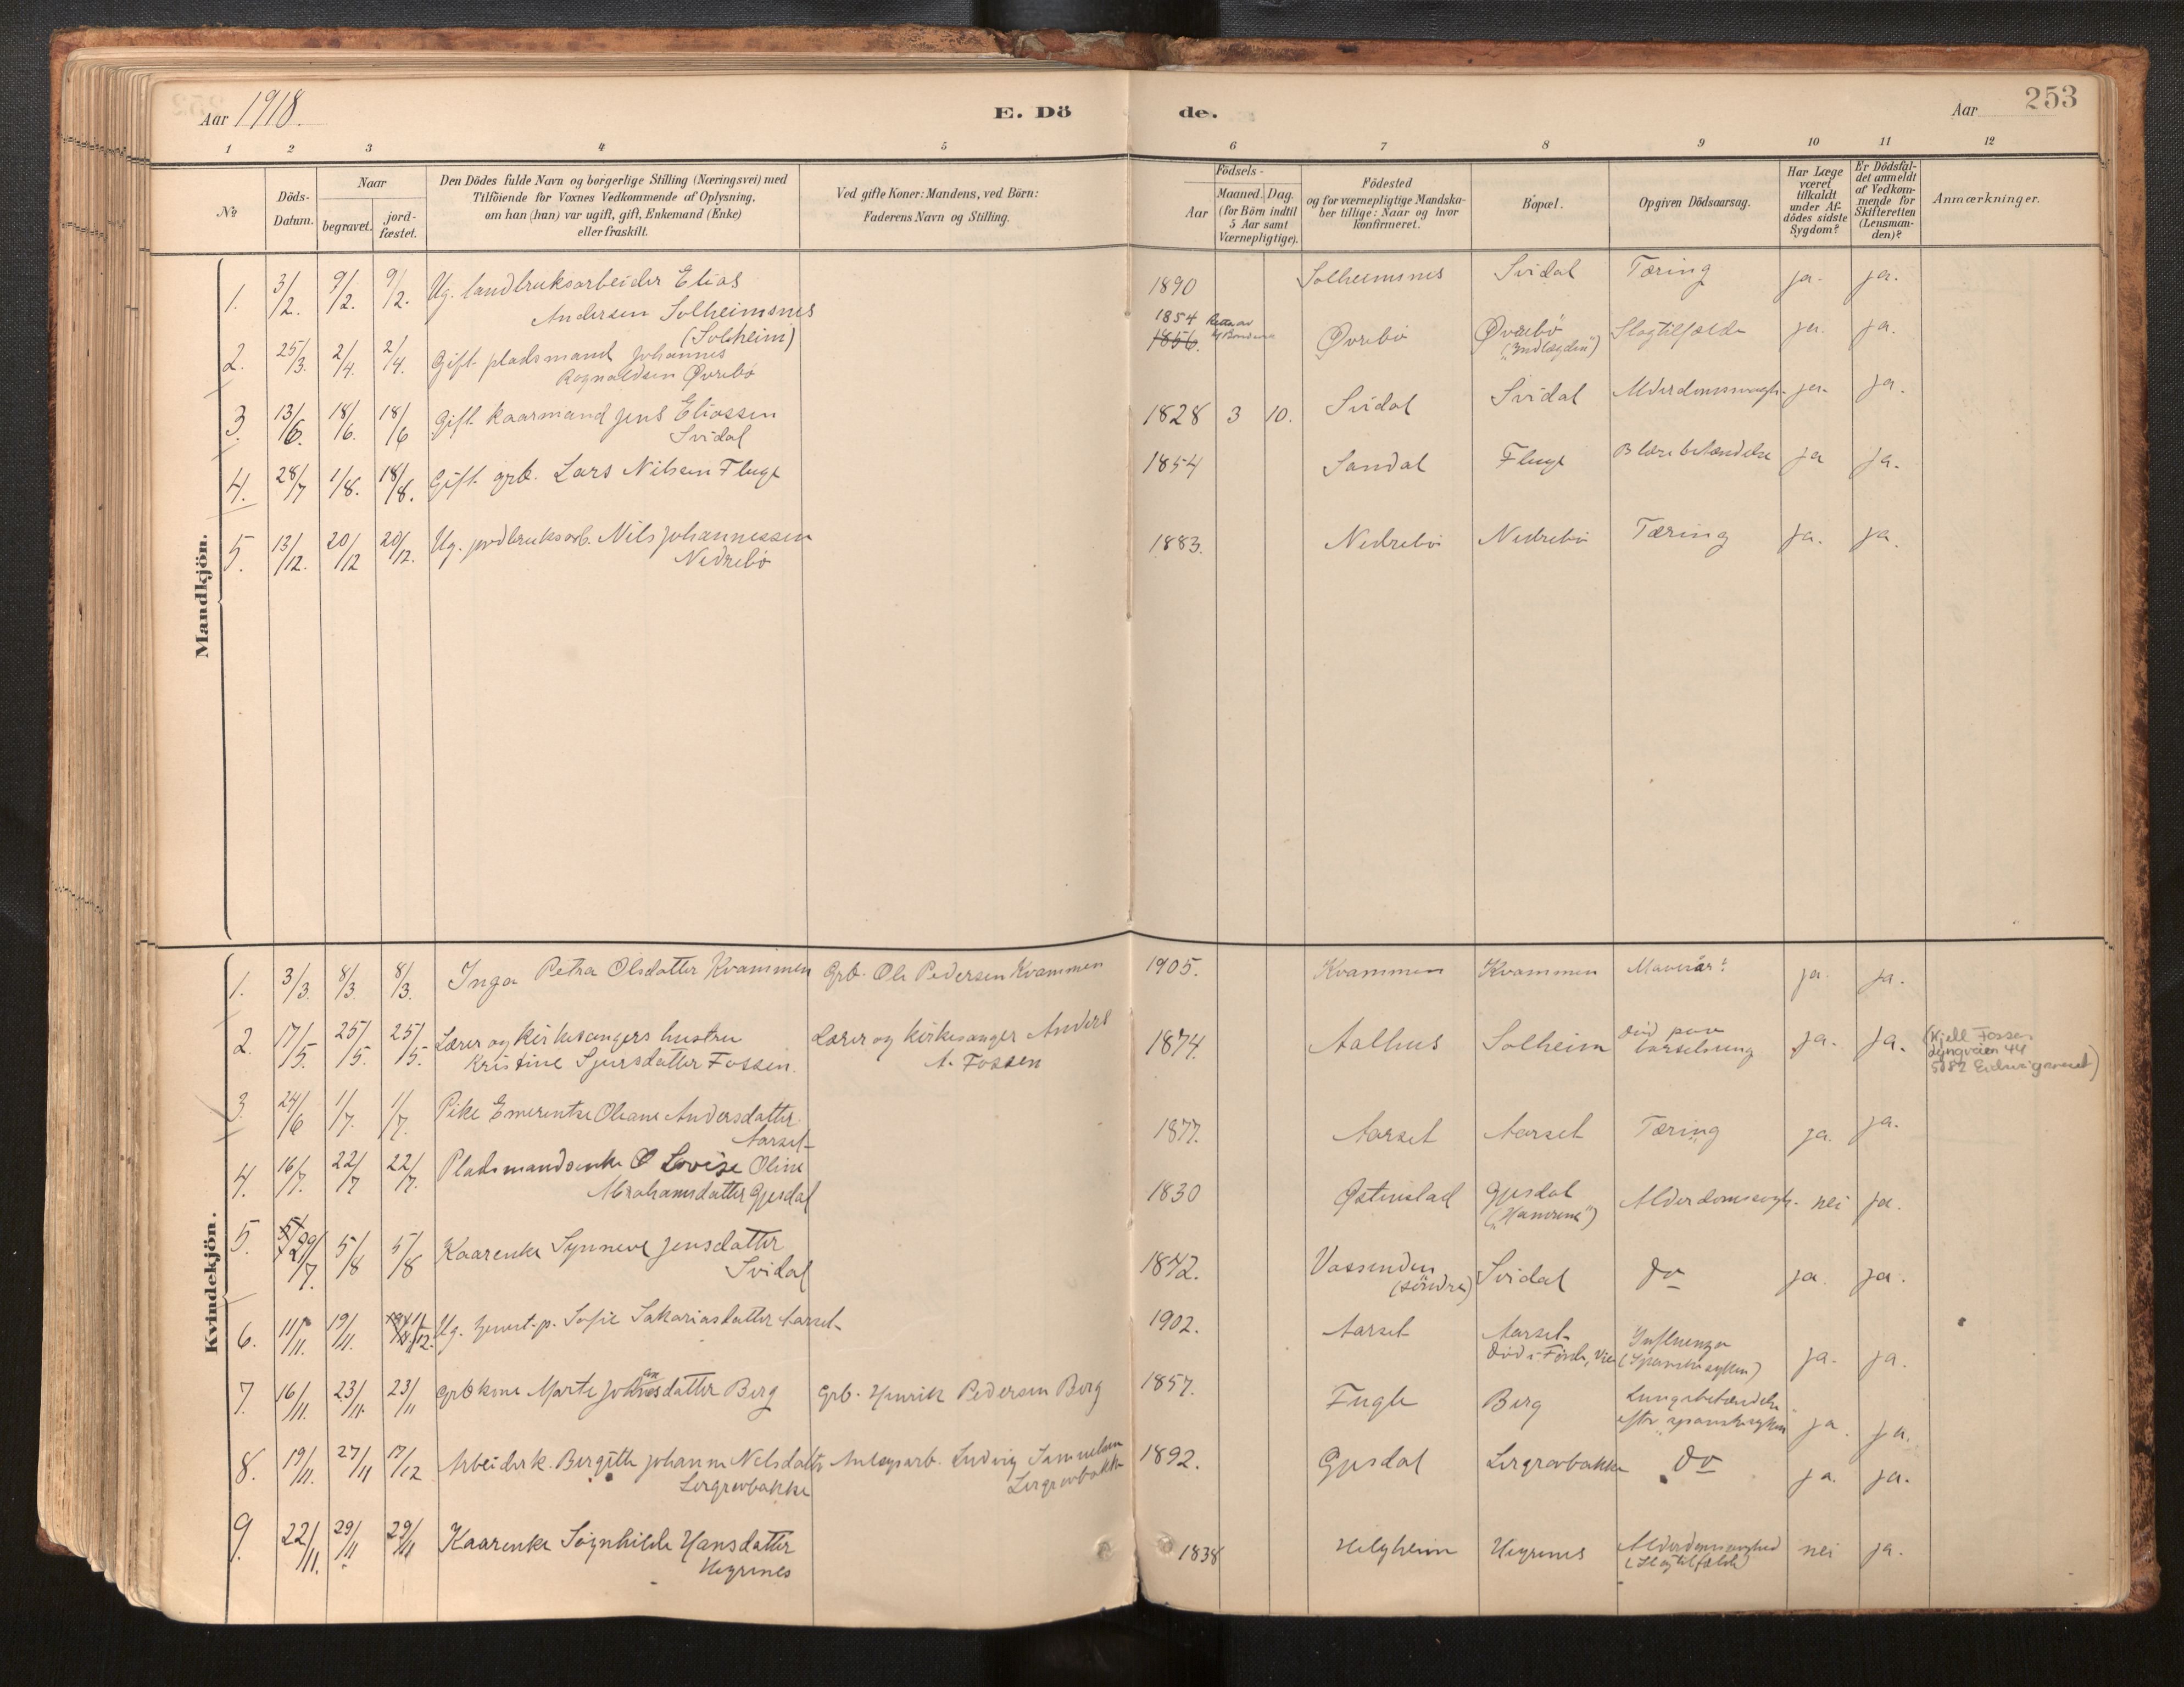 Aar 1918.
E. Dö
de.
Aar
253
1 2 3 4 5 6 7 8 9 10 11 12
No
Döds-
Datum.
Naar
begravet.
jord-
fæstet.
Den Dödes fulde Navn og borgerlige Stilling (Næringsvei) med
Tilföiende for Voxnes Vedkommende af Oplysning,
om han (hun) var ugift, gift, Enkemand (Enke)
eller fraskilt.
Ved gifte Koner: Mandens, ved Börn:
Faderens Navn og Stilling.
Födsels-
Aar
Maaned. Dag.
(for Börn indtil
5 Aar samt
Værnepligtige).
Födested
og for værnepligtige Mandska-
ber tillige: Naar og hvor
konfirmeret.
Bopæl.
Opgiven Dödsaarsag.
Har Læge
været
tilkaldt
under Af-
dödes sidste
Sygdom?
Er Dödsfal-
det anmeldt
af Vedkom-
mende for
Skifteretten
(Lensman-
den)?
Anmærkninger.
Mandkjön.
1. 3/2. 9/2. 9/2. Ug. landbruksarbeider Elias 1890 Solheimsnes Svidal Tæring ja. ja.
Andersen Solheimsnes
(Solheim)
1854
2. 25/3. 2/4. 2/4. Gift pladsmand Johannes 1856. Øvrebö Øvrebö Slagtilfælde ja. ja.
Ragnaldsen Øvrebö ("Indlægden")
3. 13/6. 18/6. 18/6 Gift kaarmand Jens Eliassen 1828 3 10. Svidal Svidal Alderdomssvagh. ja. ja.
Svidal
4. 28/7 1/8. 18/8. Gift grb. Lars Nilsen Fluge 1854 Sandal Fluge Blærebetændelse ja ja.
5. 13/12. 20/12 20/12. Ug. jordbruksarb. Nils Johannessen 1883. Nedrebö Nedrebö Tæring ja. ja.
Nedrebö
Kvindekjön.
1. 3/3. 8/3. 8/3. Inga Petra Olsdatter Kvammen Grb. Ole Pedersen Kvammen 1905. Kvammen Kvammen Mavesår? ja. ja.
2. 17/5. 25/5. 25/5. Lærer og kirkesangers hustru Lærer og kirkesanger Anders 1874. Aalhus Solheim död paa ja. ja. (Kjell Fossen
Kristine Sjursdatter Fossen. A. Fossen barselseng Lyngveien 44
5082 Eidsvågneset)
3. 24/6 1/7. 1/7. Pike Emerentse Oleane Andersdatter 1877. Aarset Aarset Tæring ja. ja.
Aarset
4. 16/7. 22/7 22/7. Pladsmandsenke O Lovise Oline 1830 Østenstad Gjesdal Alderdomssvagh. nei ja.
Abrahamsdatter Gjesdal ("Hamrene")
5. 29/7. 5/8 5/8 Kaarenke Synneve Jensdatter 1842. Vassenden Svidal do ja. ja.
Svidal (söndre)
6. 11/11. 19/11. 1/12. Ug. tjenest.p. Sofie Sakariasdatter Aarset 1902. Aarset Aarset Influenza ja. ja.
Död i Förde, Vie (Spanskesyken)
7. 16/11. 23/11. 23/11 Grbkone Marte Johannesdatter Berg Grb. Henrik Pedersen Berg 1857. Fugle Berg Lungebetændelse ja. ja.
efter spanskesyken
8. 19/11. 27/11 17/12 Arbeiderk. Birgitte Johanne Nelsdatter Anlægsarb. Ludvig Samuelsen 1892. Gjesdal Lergrovbakke do ja. ja.
Lergrovbakke Lergrovbakke
9. 22/11. 29/11 29/11 Kaarenke Søgnhilde Hansdatter 1838 Helgheim Hegrenes Alderdomssvaghed nei ja.
Hegrenes (Slagtilfælde)